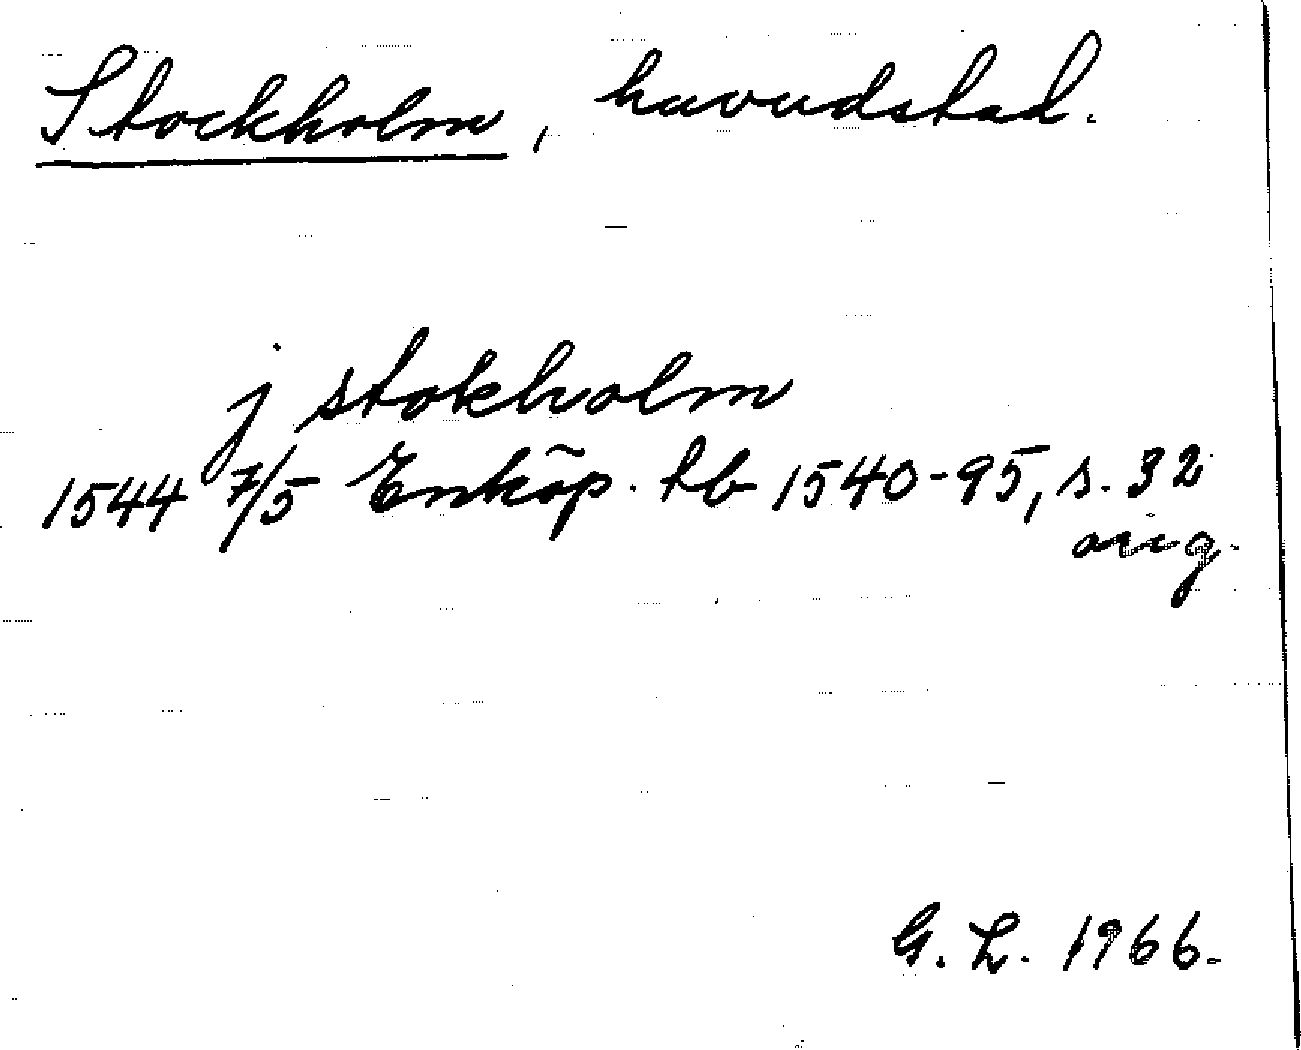 Stockholm, huvudstad.
j stokholm
1544 7/5 Enköp. tb 1540-95, s. 32
orig.
G. L. 1966.